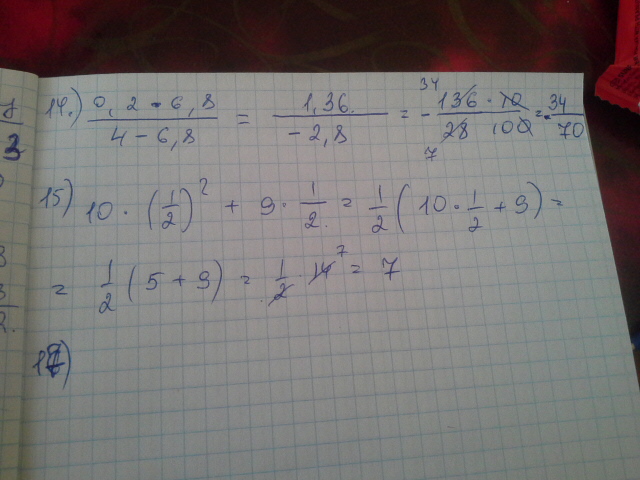 14.) 0,2·6,8 / 4-6,8 = 1,36. / -2,8 = - 136·10 / 28 100 = - 34/70
34
7
15) 10·(1/2)² + 9·1/2 = 1/2(10·1/2+9) =
= 1/2(5+9) = 1/2·14 7 = 7